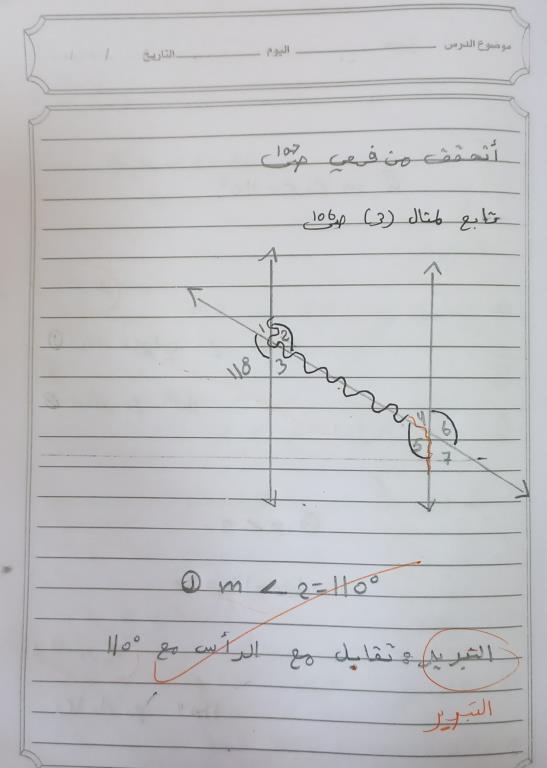 موضوع الدرس اليوم التاريخ / /
أتحقق من فهمي ص 107
تابع لمثال (3) ص 106
1 2
118 3
4
5 6
7
① m < 2 = 110°
التبريد : تقابل مع الرأس مع 110°
التبرير